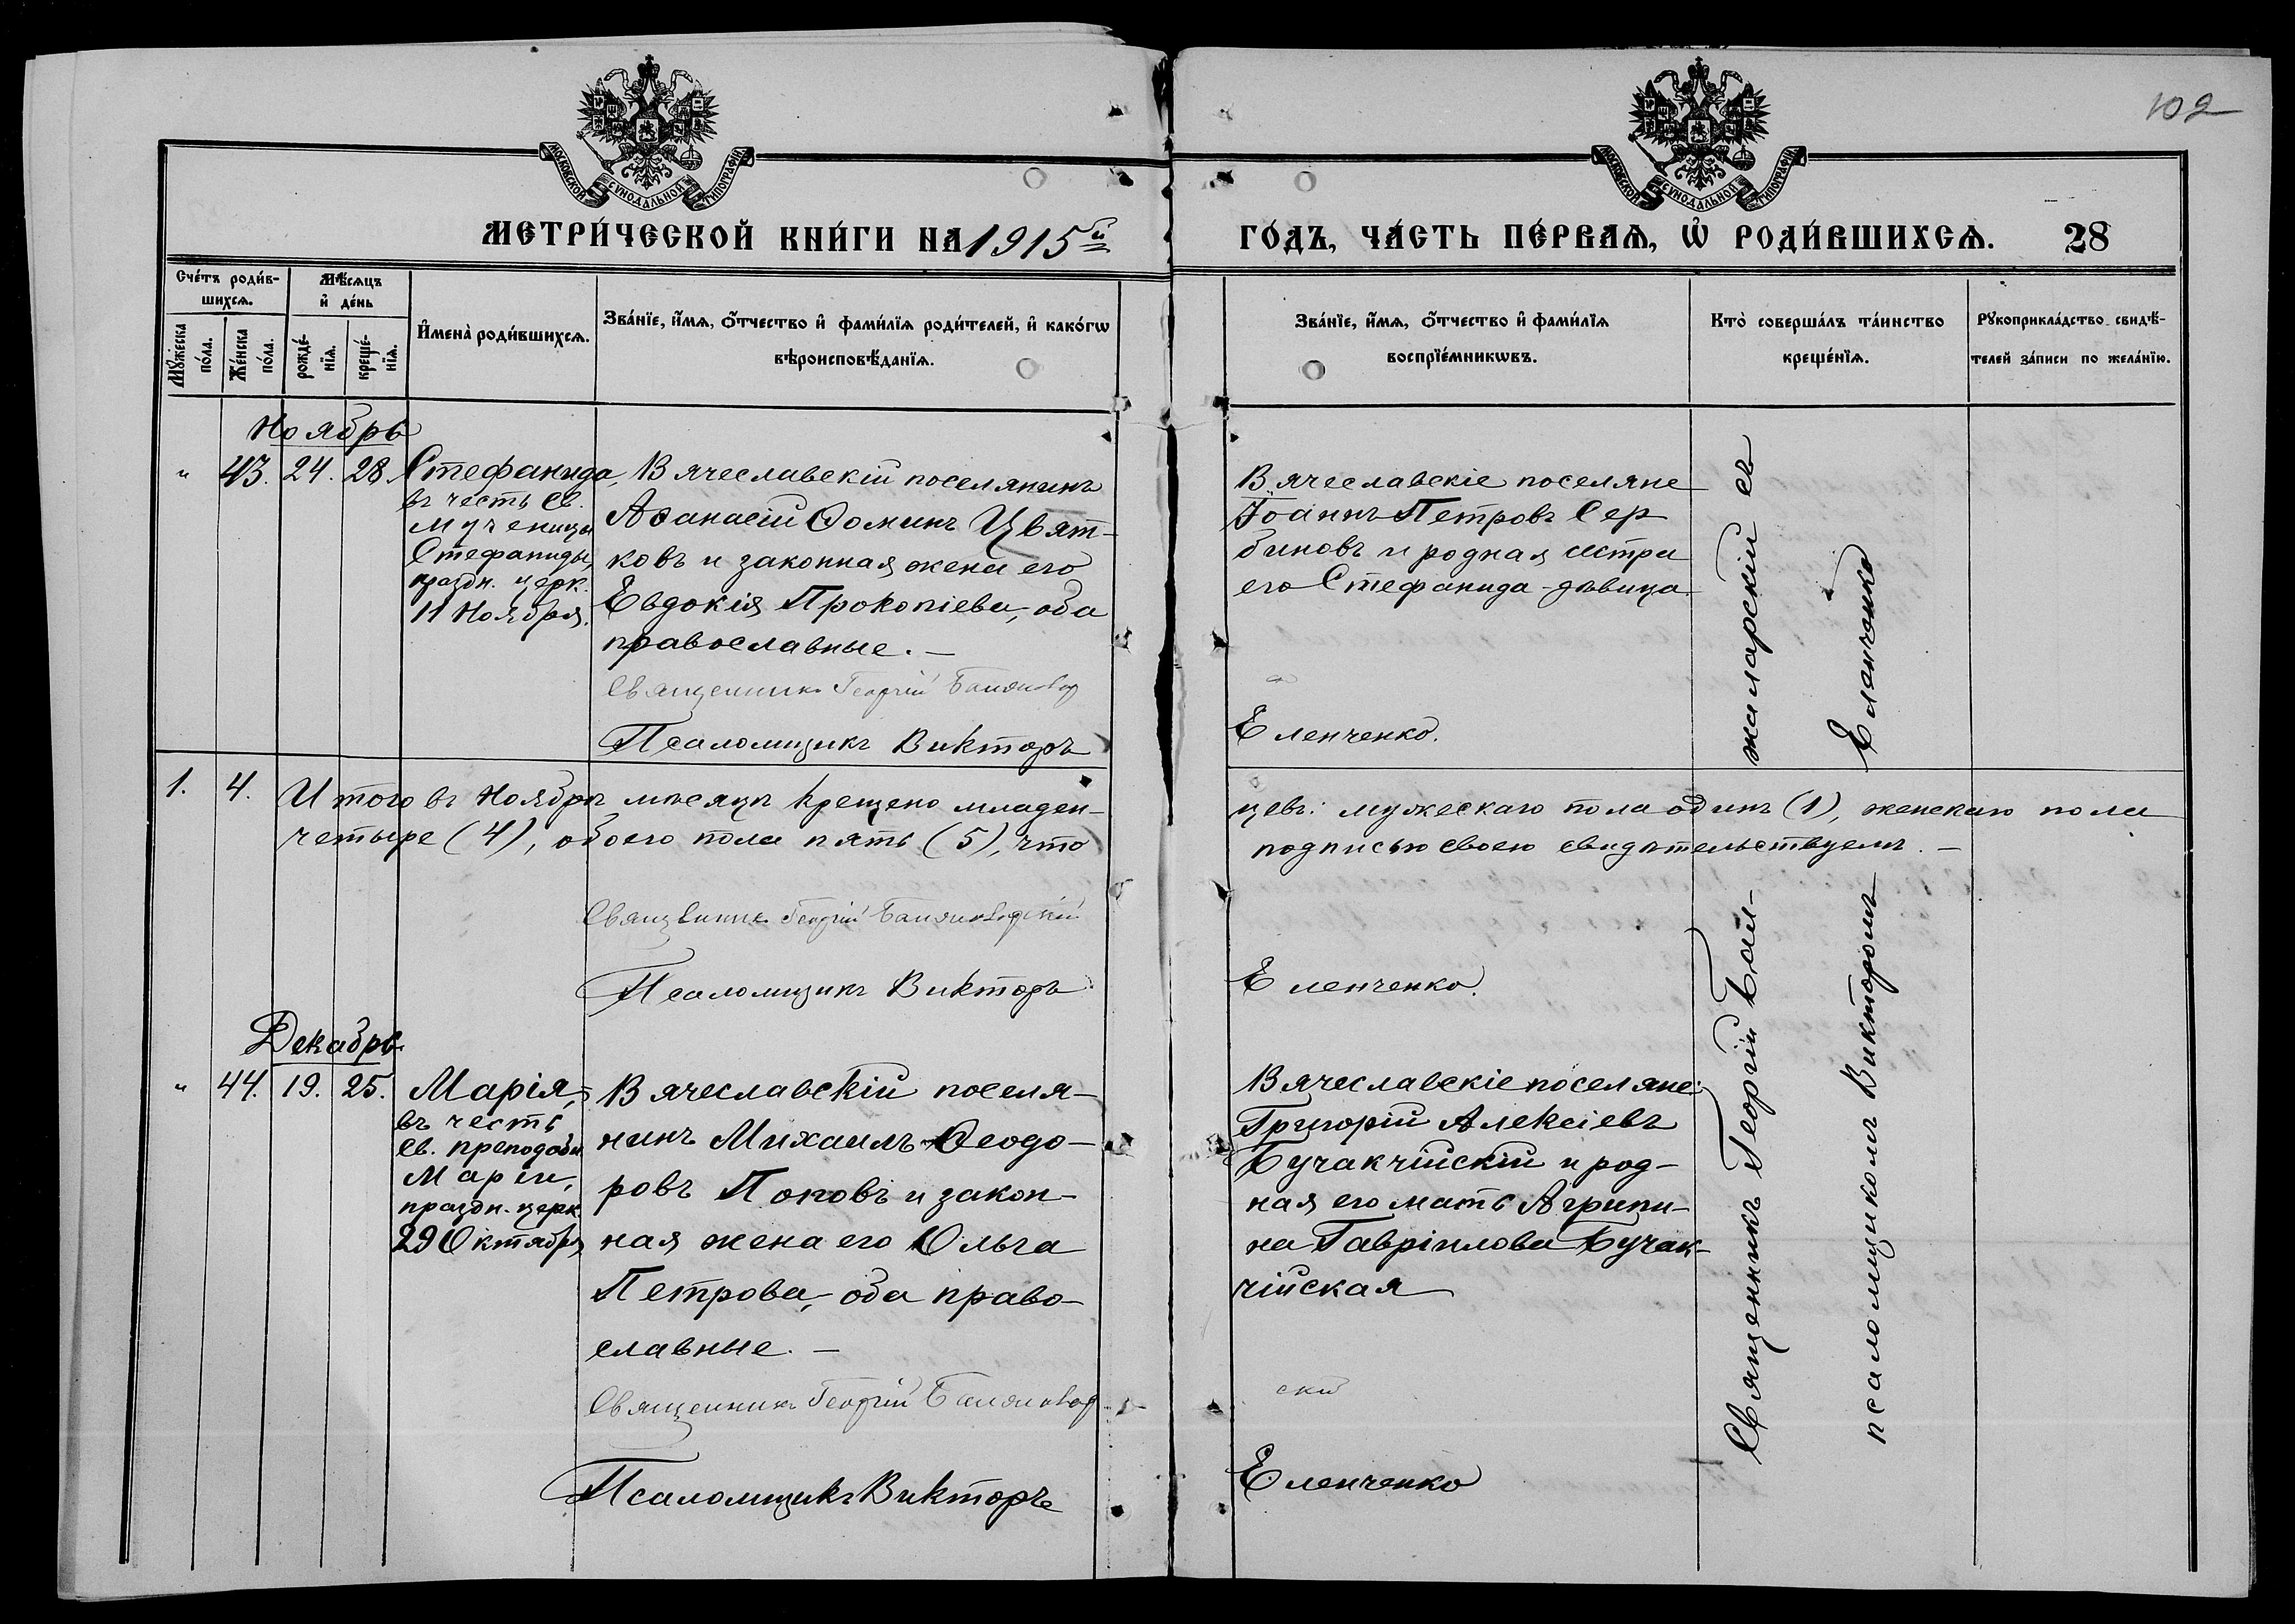 102
МОСКОВСКОЙ СѴНОДАЛЬНОЙ ТИПОГРАФІИ
МОСКОВСКОЙ СѴНОДАЛЬНОЙ ТИПОГРАФІИ
МЕТРИ́ЧЕСКОЙ КНИ́ГИ НА 1915й
ГО́ДЪ, ЧА́СТЬ ПЕ́РВАѦ, Ѡ҆ РОДИ́ВШИХСѦ. 28
Сче́тъ роди́в-
шихсѧ.
Мѣ́сяцъ
и҆ де́нь
Мꙋ́жеска
по́ла.
Же́нска
по́ла.
рожде́-
нїѧ.
креще́-
нїѧ.
И҆мена̀ роди́вшихсѧ.
Зва́нїе, и҆́мѧ, ѻ҆́тчество и҆ фами́лїѧ роди́телей, и҆ како́гѡ
вѣроисповѣ́данїѧ.
Зва́нїе, и҆́мѧ, ѻ҆́тчество и҆ фами́лїѧ
воспрїе́мникѡвъ.
Кто̀ соверша́лъ та́инство
креще́нїѧ.
Рꙋкоприкла́дство свидѣ́-
телей за́писи по жела́нїю.
Ноябрь
" 43. 24. 28
Стефанида,
въ честь Св.
мученицы
Стефаниды,
праздн. церк.
11 Ноября.
Вячеславскій поселянинъ
Аѳанасій Ѳоминъ Цвят-
ковъ и законная жена его
Евдокія Прокопіева, оба
православные. —
Священникъ Георгій
Псаломщикъ Викторъ
Вячеславскіе поселяне
Іоаннъ Петровъ Сер
биновъ и родная сестра
его Стефанида - дѣвица
Еленченко.
1. 4. Итого въ Ноябрѣ мѣсяцѣ крещено младен-
цевъ: мужескаго пола одинъ (1), женскаго пола
четыре (4), обоего пола пять (5), что
подписью своею свидѣтельствуемъ. —
Священникъ Георгій
Псаломщикъ Викторъ
Еленченко.
Декабрь
" 44. 19. 25.
Марія,
въ честь
Св. преподобн.
Маріи,
праздн. церк.
29 Октября
Вячеславскій поселя-
нинъ Михаилъ Ѳеодо-
ровъ Поповъ и закон-
ная жена его Ольга
Петрова, оба право-
славные. —
Священникъ Георгій
скій
Псаломщикъ Викторъ
Вячеславскіе поселяне:
Григорій Алексіевъ
Бучакчійскій и род-
ная его мать Агрипи-
на Гавріилова Бучак-
чійская
Еленченко
Священникъ Георгій
съ
псаломщикомъ Викторомъ
Еленченко